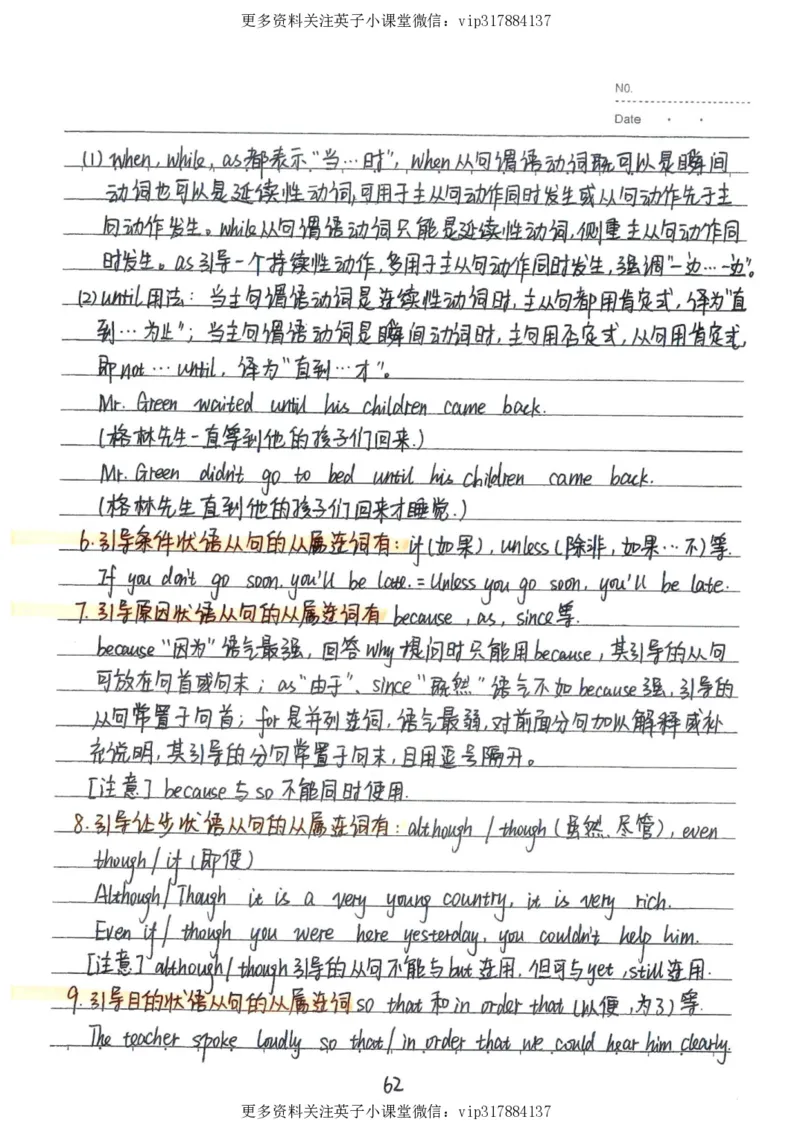 更多资料关注英子小课堂微信：vip317884137
NO.
Date
(1) when, while, as都表示"当…时", when从句谓语动词既可以是瞬间
动词也可以是延续性动词,可用于主从句动作同时发生或从句动作先于主
句动作发生。while从句谓语动词只能是延续性动词,侧重主从句动作同
时发生。as引导一个持续性动作,多用于主从句动作同时发生,强调"一边…一边"。
(2) until用法：当主句谓语动词是连续性动词时,主从句都用肯定式,译为"直
到…为止"；当主句谓语动词是瞬间动词时,主句用否定式,从句用肯定式,
即not…until, 译为"直到…才"。
Mr. Green waited until his children came back.
(格林先生一直等到他的孩子们回来.)
Mr. Green didn't go to bed until his children came back.
(格林先生直到他的孩子们回来才睡觉.)
6.引导条件状语从句的从属连词有：if(如果), unless(除非,如果…不)等.
If you don't go soon, you'll be late. = Unless you go soon, you'll be late.
7.引导原因状语从句的从属连词有 because, as, since等.
because"因为"语气最强, 回答why提问时只能用because, 其引导的从句
可放在句首或句末；as"由于"、since"既然"语气不如because强,引导的
从句常置于句首；for是并列连词,语气最弱,对前面分句加以解释或补
充说明,其引导的分句常置于句末,且用逗号隔开。
[注意] because与so不能同时使用.
8.引导让步状语从句的从属连词有：although / though (虽然、尽管), even
though / if (即使)
Although/Though it is a very young country, it is very rich.
Even if/ though you were here yesterday, you couldn't help him.
[注意] although/though引导的从句不能与but连用, 但可与yet, still连用.
9.引导目的状语从句的从属连词 so that 和 in order that (以便,为了)等.
The teacher spoke loudly so that/ in order that we could hear him clearly.
62
更多资料关注英子小课堂微信：vip317884137